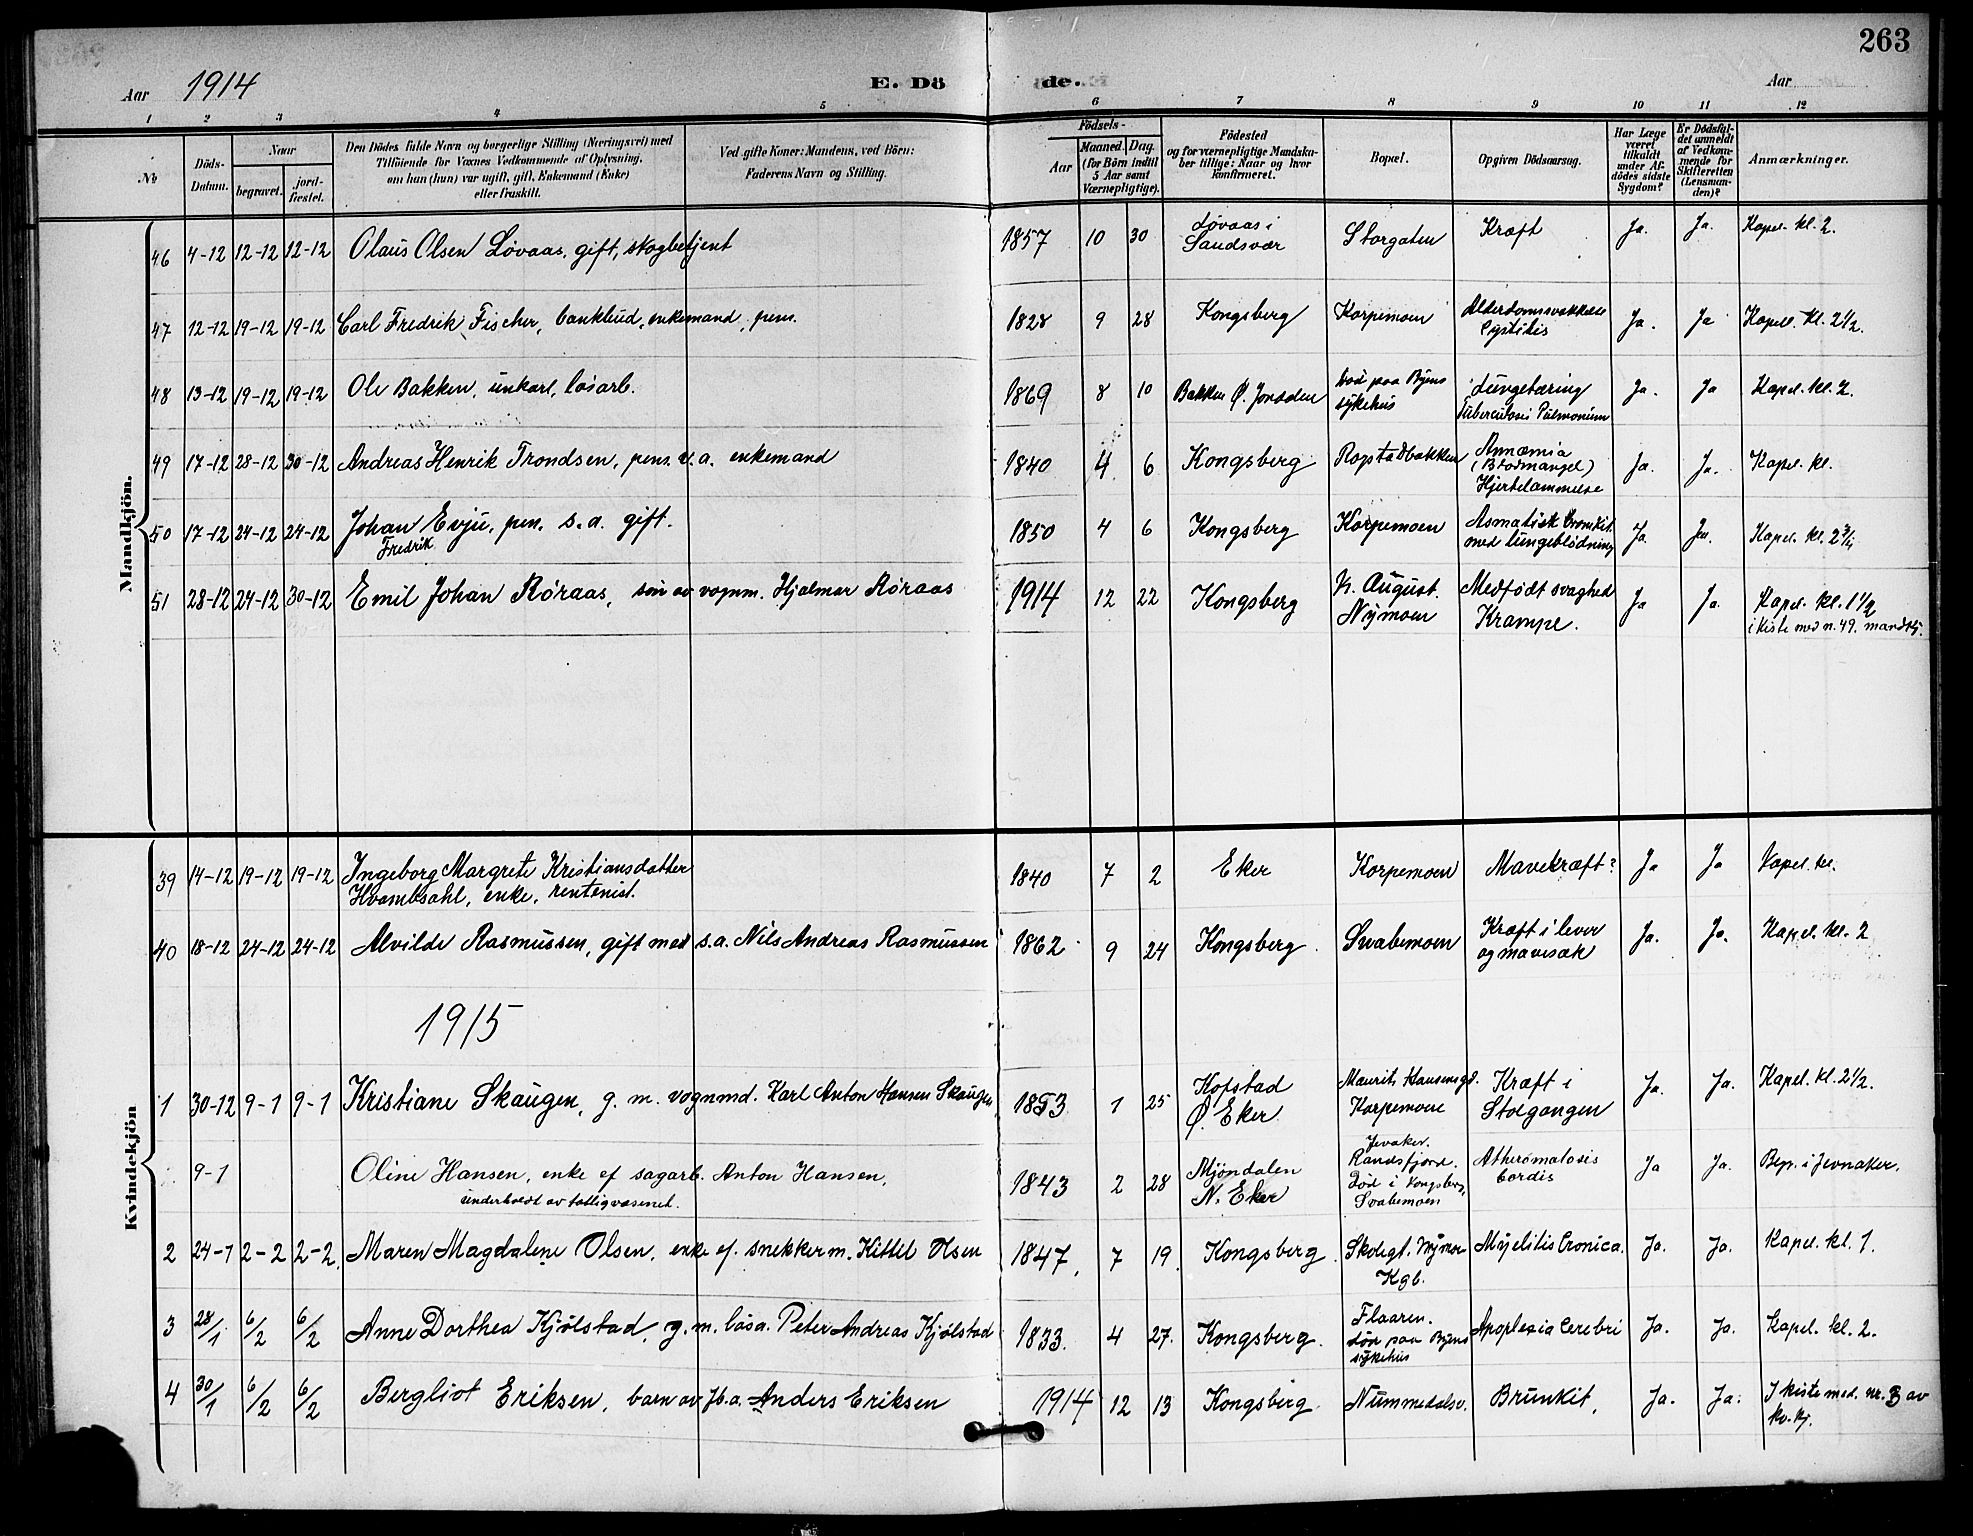 263
Aar 1914 E. Döde. Aar
1 2 3 4 5 6 7 8 9 10 11 12
No
Döds-Datum.
Naar
begravet.
jord-fæstet.
Den Dödes fulde Navn og borgerlige Stilling (Næringsvei) med
Tilföiende for Voxnes Vedkommende af Oplysning,
om han (hun) var ugift, gift, Enkemand (Enke)
eller fraskilt.
Ved gifte Koner: Mandens, ved Börn:
Faderens Navn og Stilling.
Födsels-
Aar
Maaned. Dag.
(for Börn indtil
5 Aar samt
Værnepligtige).
Födested
og for værnepligtige Mandska-
ber tillige: Naar og hvor
konfirmeret.
Bopæl.
Opgiven Dödsaarsag.
Har Læge
været
tilkaldt
under Af-
dödes sidste
Sygdom?
Er Dödsfal-
det anmeldt
af Vedkom-
mende for
Skifteretten
(Lensman-
den)?
Anmærkninger.
Mandkjön.
46 4-12 12-12 12-12 Olaus Olsen Løvaas, gift, skogbetjent 1857 10 30 Løvaas i Sandsvær Storgaten Kræft Ja. Ja. Kapel. kl. 2.
47 12-12 19-12 19-12 Carl Fredrik Fischer, bankbud, enkemand, pens. 1828 9 28 Kongsberg Korpemoen Alderdomssvakkelse Cystitis Ja. Ja Kapel. kl. 2 1/2.
48 13-12 19-12 19-12 Ole Bakken, unkarl, løsarb. 1869 8 10 Bakken Ø. Jondalen død paa Byens sykehus Lungetæring Tuberculosis Pulmonium Ja. Ja Kapel. kl. 2.
49 17-12 28-12 30-12 Andreas Henrik Trondsen, pens. v.a. enkemand 1840 4 6 Kongsberg Rogstadbakken Annæmia (Blodmangel) Hjertelammelse Ja. Ja. Kapel. kl.
50 17-12 24-12 24-12 Johan Fredrik Evju, pen. s.a. gift. 1850 4 6 Kongsberg Korpemoen Asmatisk Bronkit. med lungeblødning Ja. Ja. Kapel. kl. 2 3/4
51 28-12 24-12 30-12 Emil Johan Røraas, søn av vognm. Hjalmar Røraas 1914 12 22 Kongsberg K. August. Nymoen Medfødt svaghed Krampe. Ja Ja. Kapel. kl. 1 1/2 i kiste med n. 49. mandkj.
Kvindekjön
39 14-12 19-12 19-12 Ingeborg Margrete Kristiansdatter Hvambsahl, enke, rentenist. 1840 7 2 Eker Korpemoen Mavekræft? Ja Ja Kapel. kl.
40 18-12 24-12 24-12 Alvilde Rasmussen, gift med s.a. Nils Andreas Rasmussen 1862 9 24 Kongsberg Svabemoen Kræft i lever og mavesæk Ja. Ja. Kapel. kl. 2
1915
1 30-12 9-1 9-1 Kristiane Skaugen, g. m. vognmd. Karl Anton Hansen Skaugen 1853 1 25 Kopstad Ø. Eker Maurits Hansensgd. Korpemoen Kræft i Stolgangen Ja. Ja. Kapel. kl. 2 1/2.
9-1 Oline Hansen, enke ef sagarb. Anton Hansen, underholdt av fattigvæsenet. 1843 2 28 Mjøndalen N. Eker Jevaker. Randsfjord. Død i Kongsberg, Svabemoen Atheromatosis Cordis Ja Ja. Begr. i Jevnaker.
2 24-1 2-2 2-2. Maren Magdalene Olsen, enke ef. snekkerm. Kittil Olsen 1847, 7 19. Kongsberg. Skolegt. Nymoen Kgb. Myelitis Cronica. Ja. Ja. Kapel. kl. 1.
3 28/1 6/2 6/2 Anne Dorthea Kjølstad, g.m. løsa. Peter Andreas Kjølstad 1833. 4 27. Kongsberg. Flaaren. død paa Byens sykehus Apoplexia Cerebri Ja. Ja. Kapel. kl. 2.
4 30/1 6/2 6/2 Bergliot Eriksen, barn av Jb.a. Anders Eriksen 1914 12 13 Kongsberg. Nummedalsv. Brunkit, Ja. Ja. I kiste med. nr. 3 av kv.kj.